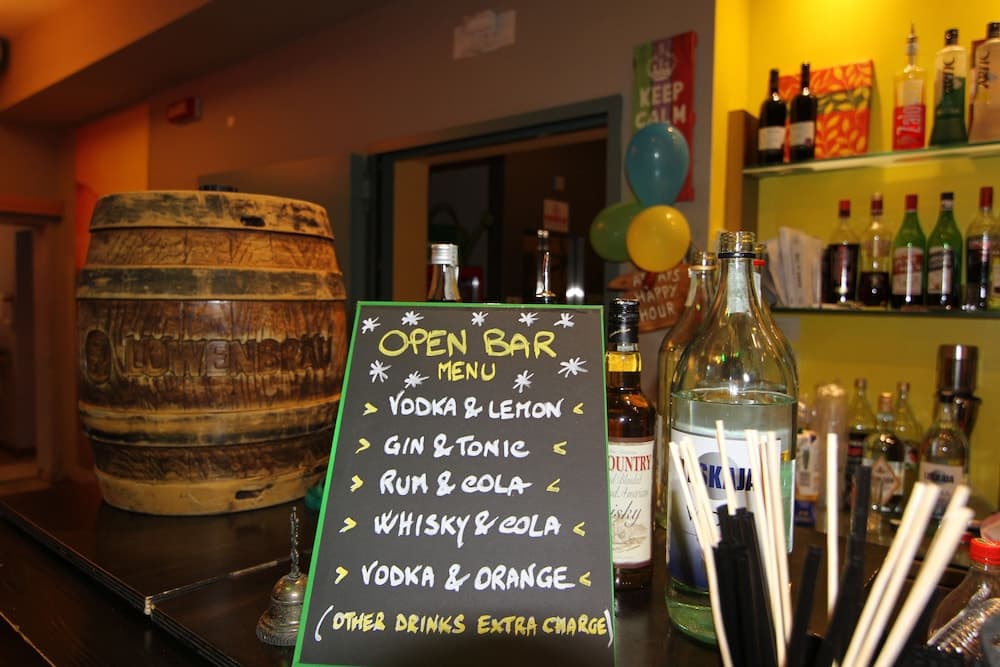 KEEP
CALM
HAPPY
HOUR
LÖWENBRÄU
Zalą
OPEN BAR
MENU
> VODKA & LEMON <
> GIN & TONIC <
> RUM & COLA <
> WHISKY & COLA <
> VODKA & ORANGE <
(OTHER DRINKS EXTRA CHARGE)
COUNTRY